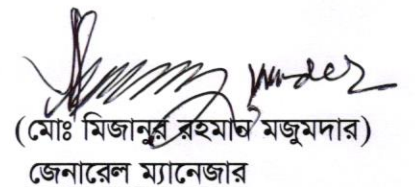 (মোঃ মিজানুর রহমান মজুমদার)
জেনারেল ম্যানেজার